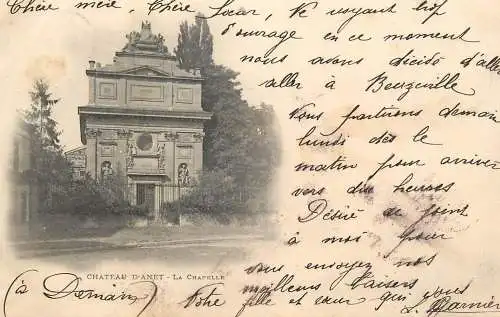 Chère mère, Chère Soeur, Ne voyant trop
d'ouvrage en ce moment
nous avons décidé d'aller
aller à Beuzeville
Nous partirons demain
lundi dès le
matin pour arriver
vers dix heures
Désiré se joint
à moi pour
vous envoyer nos
meilleurs baisers
CHATEAU D'ANET - LA CHAPELLE
(à Demain) Votre fille et soeur qui vous